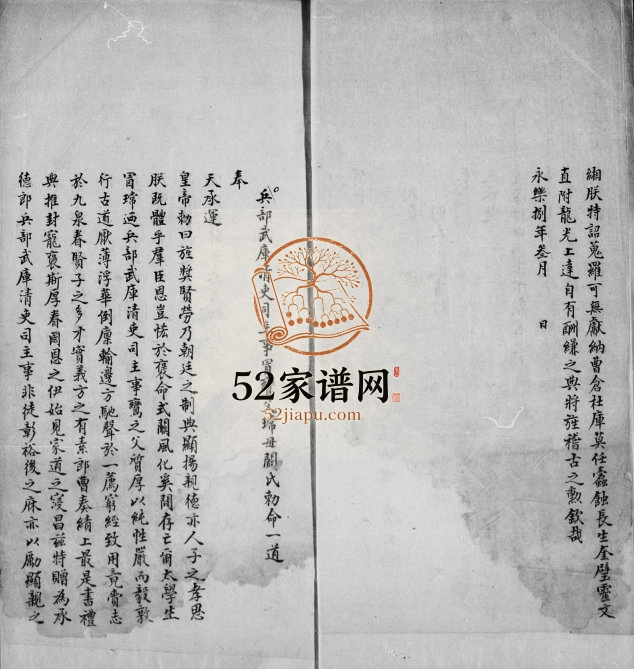 緗朕特詔蒐羅可無獻納曹倉杜庫莫任蠹蝕長生奎璧靈文
直附龍光上達自有酬縑之典將旌稽古之勲欽哉
永樂捌年叁月　日
兵部武庫清吏司主事瑺母關氏勅命一道
奉
天承運
皇帝勅曰旌奬賢勞乃朝廷之制典顯揚親德亦人子之孝思
朕既體乎羣臣恩豈恡於褒命式關風化奚間存亡爾太學生
瑺廼兵部武庫清吏司主事鸞之父質厚以純性嚴而毅敦
行古道厭薄浮華倒廩輸邊方馳聲於一薦窮經致用竟賫志
於九泉眷賢子之多才實義方之有素郎曹奏績上最是書禮
與推封寵褒斯厚眷國恩之伊始見家道之寖昌兹特贈為承
德郎兵部武庫清吏司主事非徒彰裕後之庥亦以勵顯親之
52家谱网
52jiapu.com